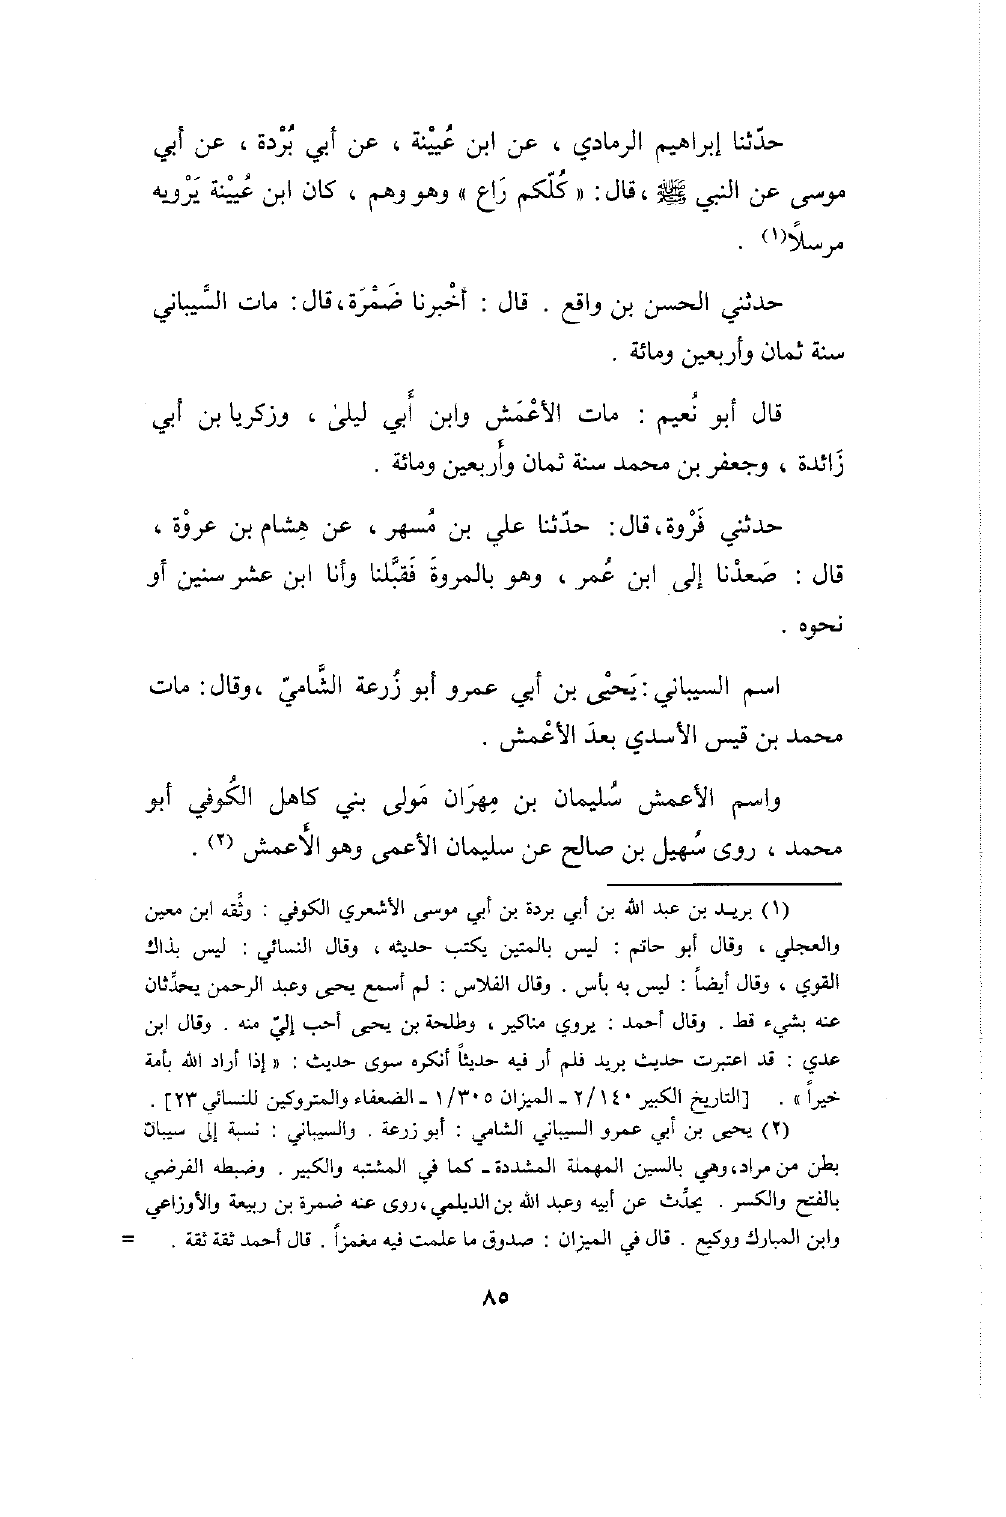 حدّثنا إبراهيم الرمادي ، عن ابن عُيَيْنة ، عن أبي بُرْدة ، عن أبي
موسى عن النبي ﷺ ، قال : « كُلّكم رَاع » وهو وهم ، كان ابن عُيَيْنة يَرْويه
مرسلاً(١) .
حدثني الحسن بن واقع . قال : أخْبرنا ضَمْرَة ، قال : مات السَّيباني
سنة ثمان وأربعين ومائة .
قال أبو نُعيم : مات الأعْمَش وابن أبي ليلىٰ ، وزكريا بن أبي
زَائدة ، وجعفر بن محمد سنة ثمان وأربعين ومائة .
حدثني فَرْوة ، قال : حدّثنا علي بن مُسهر ، عن هِشام بن عروْة ،
قال : صَعدْنا إلى ابن عُمر ، وهو بالمروةَ فَقبَّلنا وأنا ابن عشر سنين أو
نحوه .
اسم السيباني : يَحيْى بن أبي عمرو أبو زُرعة الشَّاميّ ، وقال : مات
محمد بن قيس الأسدي بعدَ الأعْمش .
واسم الأعمش سُليمان بن مِهرَان مَولى بني كاهل الكُوفي أبو
محمد ، روى سُهيل بن صالح عن سليمان الأعمى وهو الأعمش (٢) .
(١) بريد بن عبد الله بن أبي بردة بن أبي موسى الأشعري الكوفي : وثَّقه ابن معين
والعجلي ، وقال أبو حاتم : ليس بالمتين يكتب حديثه ، وقال النسائي : ليس بذاك
القوي ، وقال أيضاً : ليس به بأس . وقال الفلاس : لم أسمع يحيى وعبد الرحمن يحدَّثان
عنه بشيء قط . وقال أحمد : يروي مناكير ، وطلحة بن يحيى أحب إليّ منه . وقال ابن
عدي : قد اعتبرت حديث بريد فلم أر فيه حديثاً أنكره سوى حديث : « إذا أراد الله بأمة
خيراً » . [التاريخ الكبير ٢/١٤٠ ـ الميزان ١/٣٠٥ ـ الضعفاء والمتروكين للنسائي ٢٣] .
(٢) يحيى بن أبي عمرو السيباني الشامي : أبو زرعة . والسيباني : نسبة إلى سيبان
بطن من مراد ، وهي بالسين المهملة المشددة ـ كما في المشتبه والكبير . وضبطه الفرضي
بالفتح والكسر . يحدَّث عن أبيه وعبد الله بن الديلمي ، روى عنه ضمرة بن ربيعة والأوزاعي
وابن المبارك ووكيع . قال في الميزان : صدوق ما علمت فيه مغمزاً . قال أحمد ثقة ثقة . =
٨٥